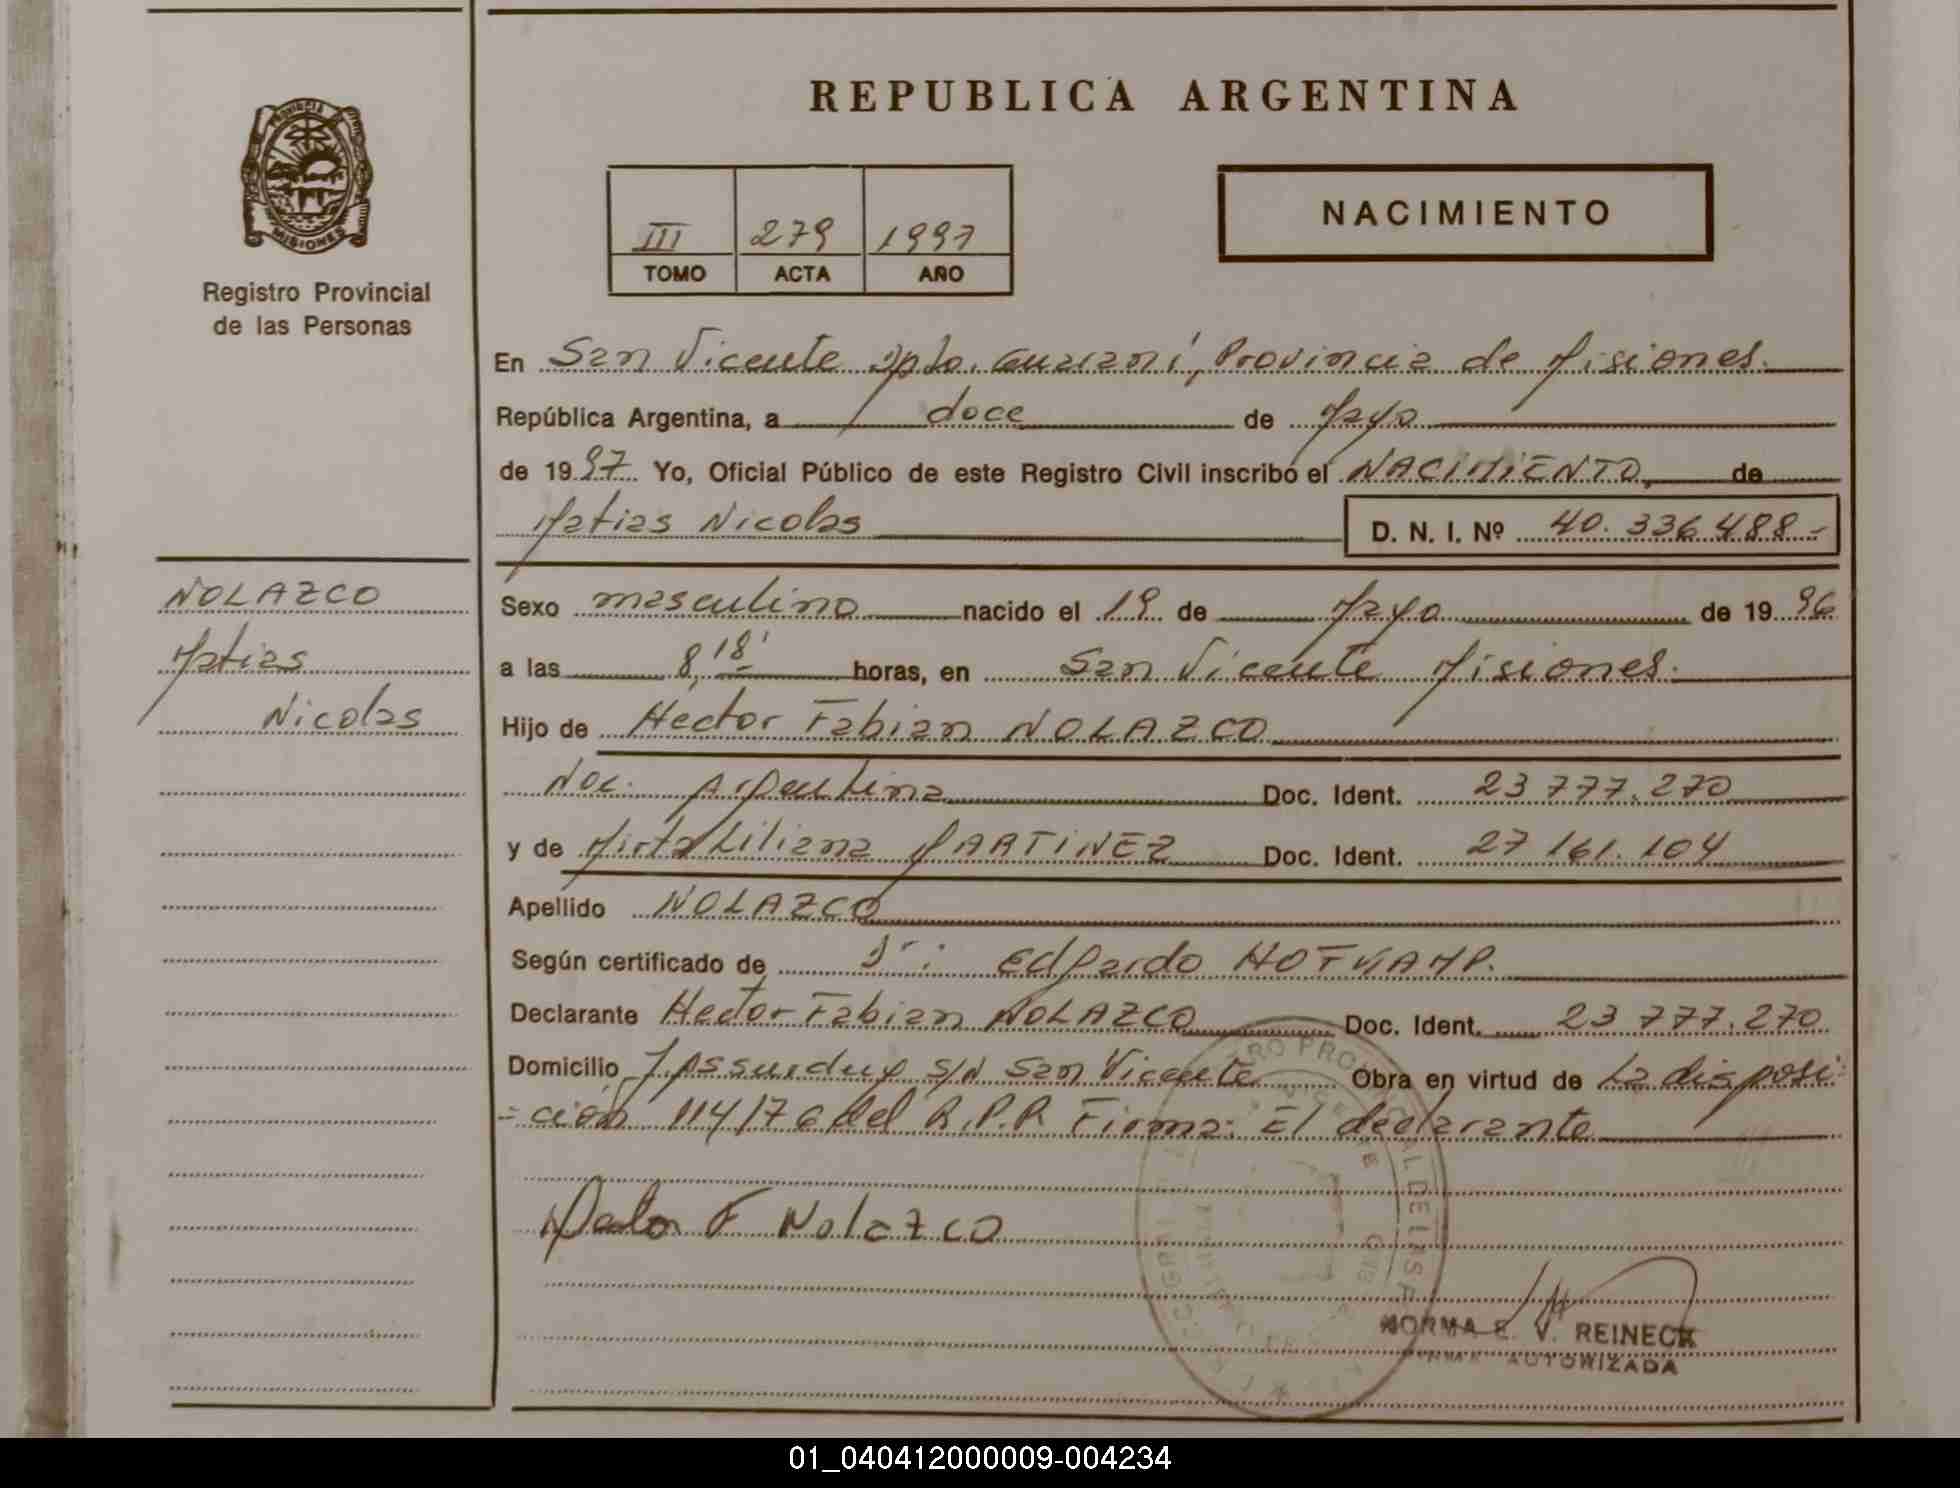 REPUBLICA ARGENTINA
PROVINCIA DE
MISIONES
Registro Provincial
de las Personas
III 279 1997
TOMO ACTA AÑO
NACIMIENTO
En San Vicente Dpto. Guaraní, Provincia de Misiones.
República Argentina, a doce de Mayo
de 1997 Yo, Oficial Público de este Registro Civil inscribo el NACIMIENTO, de
Matias Nicolas D. N. I. Nº 40.336.488.-
NOLAZCO
Matias
Nicolas
Sexo masculino nacido el 19 de Mayo de 1996
a las 8,18' horas, en San Vicente Misiones.
Hijo de Hector Fabian NOLAZCO
Nac. Argentina Doc. Ident. 23 777.270
y de Mirta Liliana MARTINEZ Doc. Ident. 27 161.104
Apellido NOLAZCO
Según certificado de Dr: Edgardo
Declarante Hector Fabian NOLAZCO Doc. Ident. 23 777.270
Domicilio s/N San Vicente Obra en virtud de La disposi=
=ción 114/76 del R.P.P. Firma: El declarante
F Nolazco
NORMA E. V. REINECK
FIRMA AUTORIZADA
01_040412000009-004234